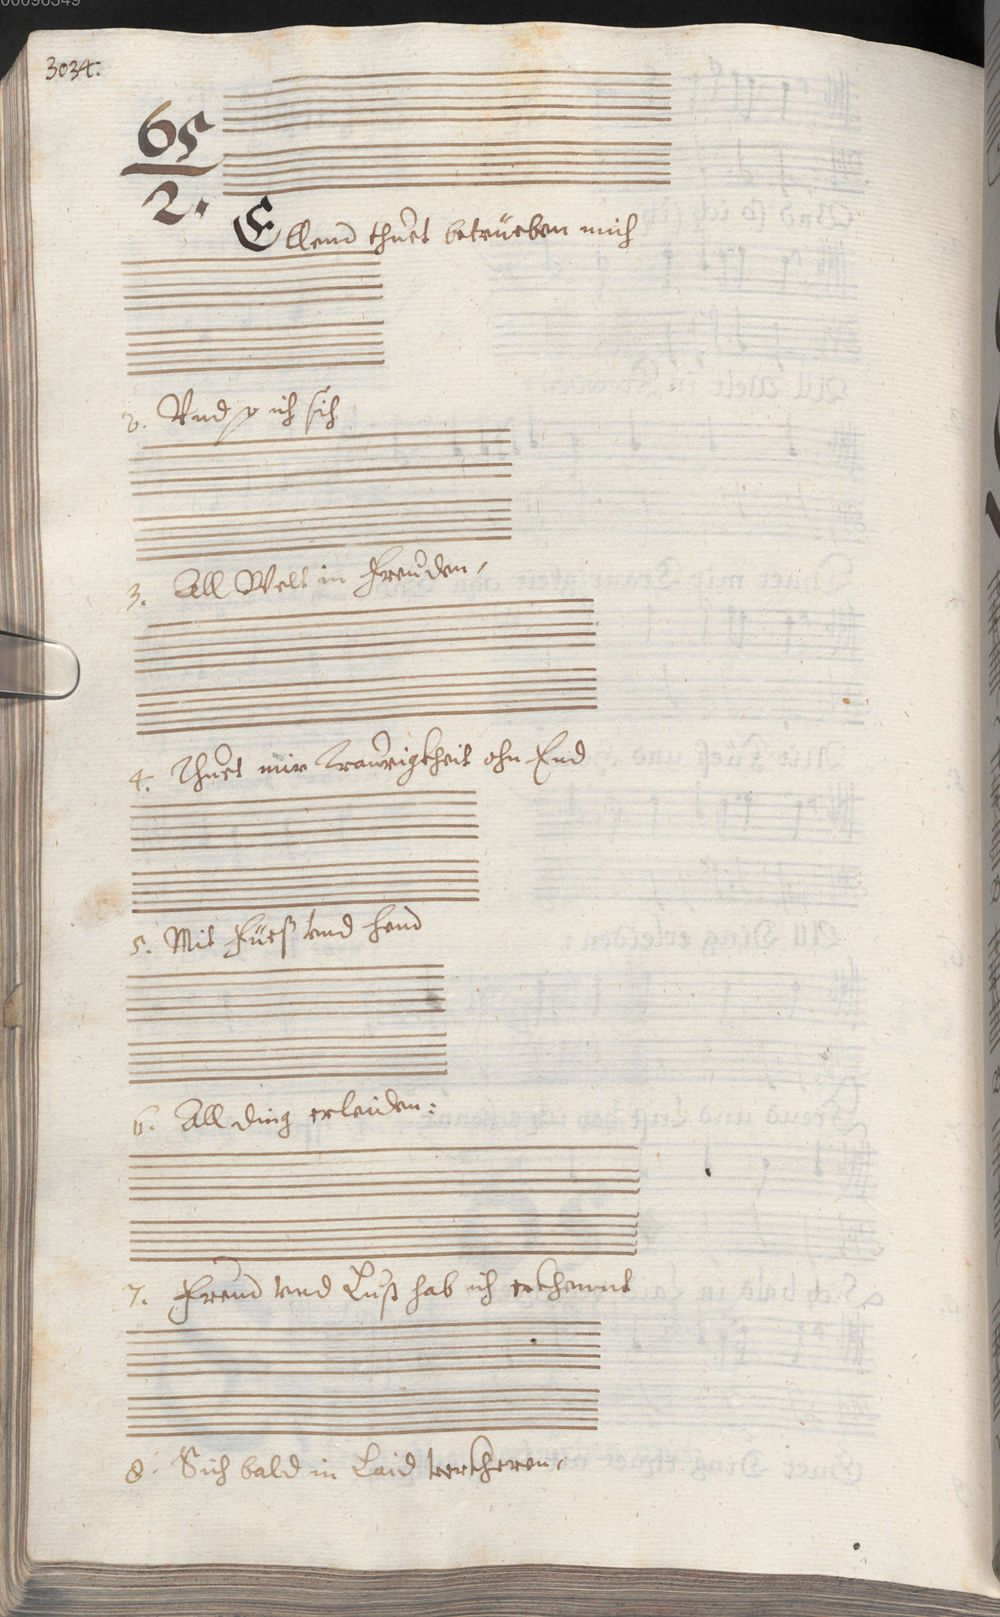 00096349
3034.
65
2.
Ellend thuet betrüeben mich
2. Vnd so ich sich
3. All Welt in Freuden,
4. Thuet mir Traurigkheit ohn End
5. Mit Füeß vnd Hend
6. All ding erleiden:
7. Freud vnd Lust hab ich erkhennt
8. Sich bald in Laid verkheren,